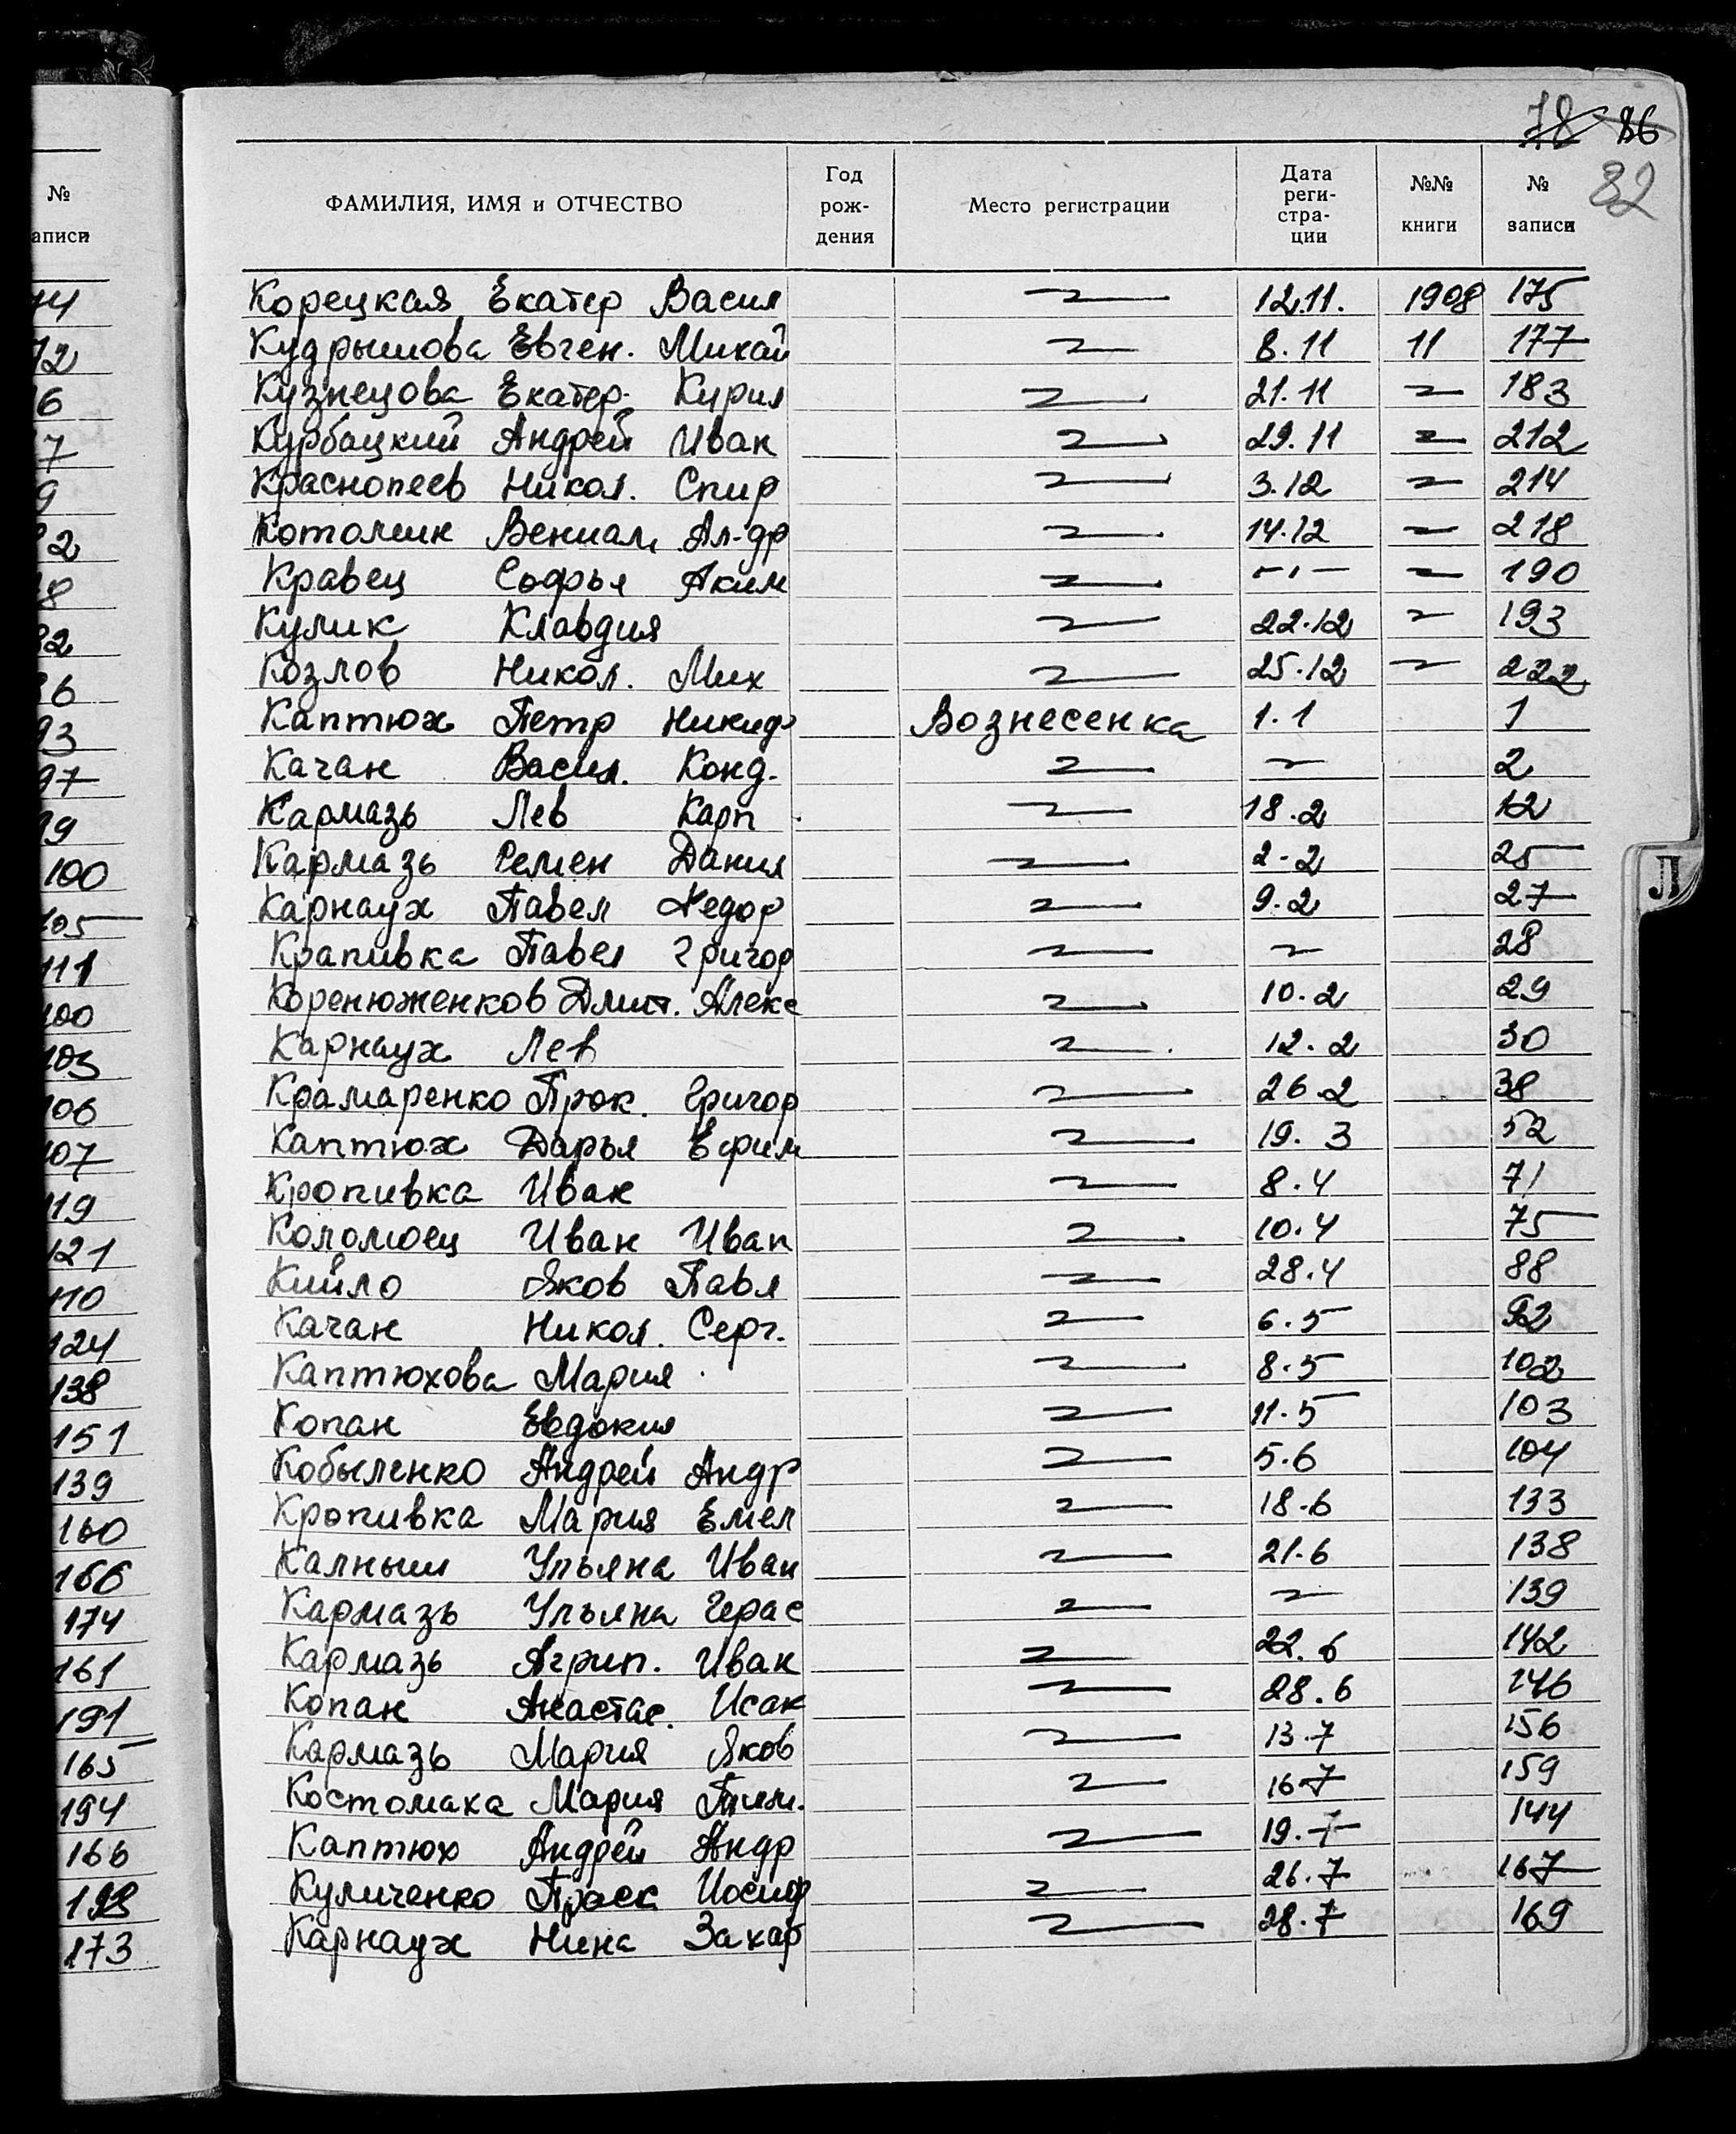 78 86
82
№ записи
ФАМИЛИЯ, ИМЯ и ОТЧЕСТВО Год рождения Место регистрации Дата регистрации №№ книги № записи
Корецкая Екатер Васил 〃 12.11. 1908 175
Кудрышова Евген. Михай 〃 8.11 11 177
Кузнецова Екатер. Кирил 〃 21.11 〃 183
Курбацкий Андрей Иван 〃 29.11 〃 212
Краснопеев Никол. Спир 〃 3.12 〃 214
Котомин Вениам Ал-др 〃 14.12 〃 218
Кравец Софья Аким 〃 -〃- 〃 190
Кулик Клавдия 〃 22.12 〃 193
Козлов Никол. Мих 〃 25.12 〃 222
Каптюх Петр Никиф Вознесенка 1.1 1
Качан Васил. Конд. 〃 〃 2
Кармазь Лев Карп 〃 18.2 12
Кармазь Семен Данил 〃 2-2 25
Карнаух Павел Федор 〃 9.2 27
Крапивка Павел Григор 〃 〃 28
Коренюженков Дмит. Алекс 〃 10.2 29
Карнаух Лев 〃 12.2 30
Крамаренко Прок. Григор 〃 26.2 38
Каптюх Дарья Ефим 〃 19.3 52
Кропивка Иван 〃 8.4 71
Коломоец Иван Иван 〃 10.4 75
Кийло Яков Павл 〃 28.4 88
Качан Никол. Серг. 〃 6.5 92
Каптюхова Мария 〃 8.5 102
Копан Евдокия 〃 11.5 103
Кобыленко Андрей Андр 〃 5.6 104
Кропивка Мария Емел 〃 18.6 133
Калныш Ульяна Иван 〃 21.6 138
Кармазь Ульяна Герас 〃 〃 139
Кармазь Агрип. Иван 〃 22.6 142
Копан Анастас. Исак 〃 28.6 146
Кармазь Мария Яков 〃 13.7 156
Костомаха Мария 〃 16.7 159
Каптюх Андрей Андр 〃 19.7 144
Куличенко Праск Иосиф 〃 26.7 167
Карнаух Нина Захар 〃 28.7 169
Л
100
105
111
100
103
106
107
119
121
110
124
138
151
139
160
166
174
161
191
165
194
166
198
173